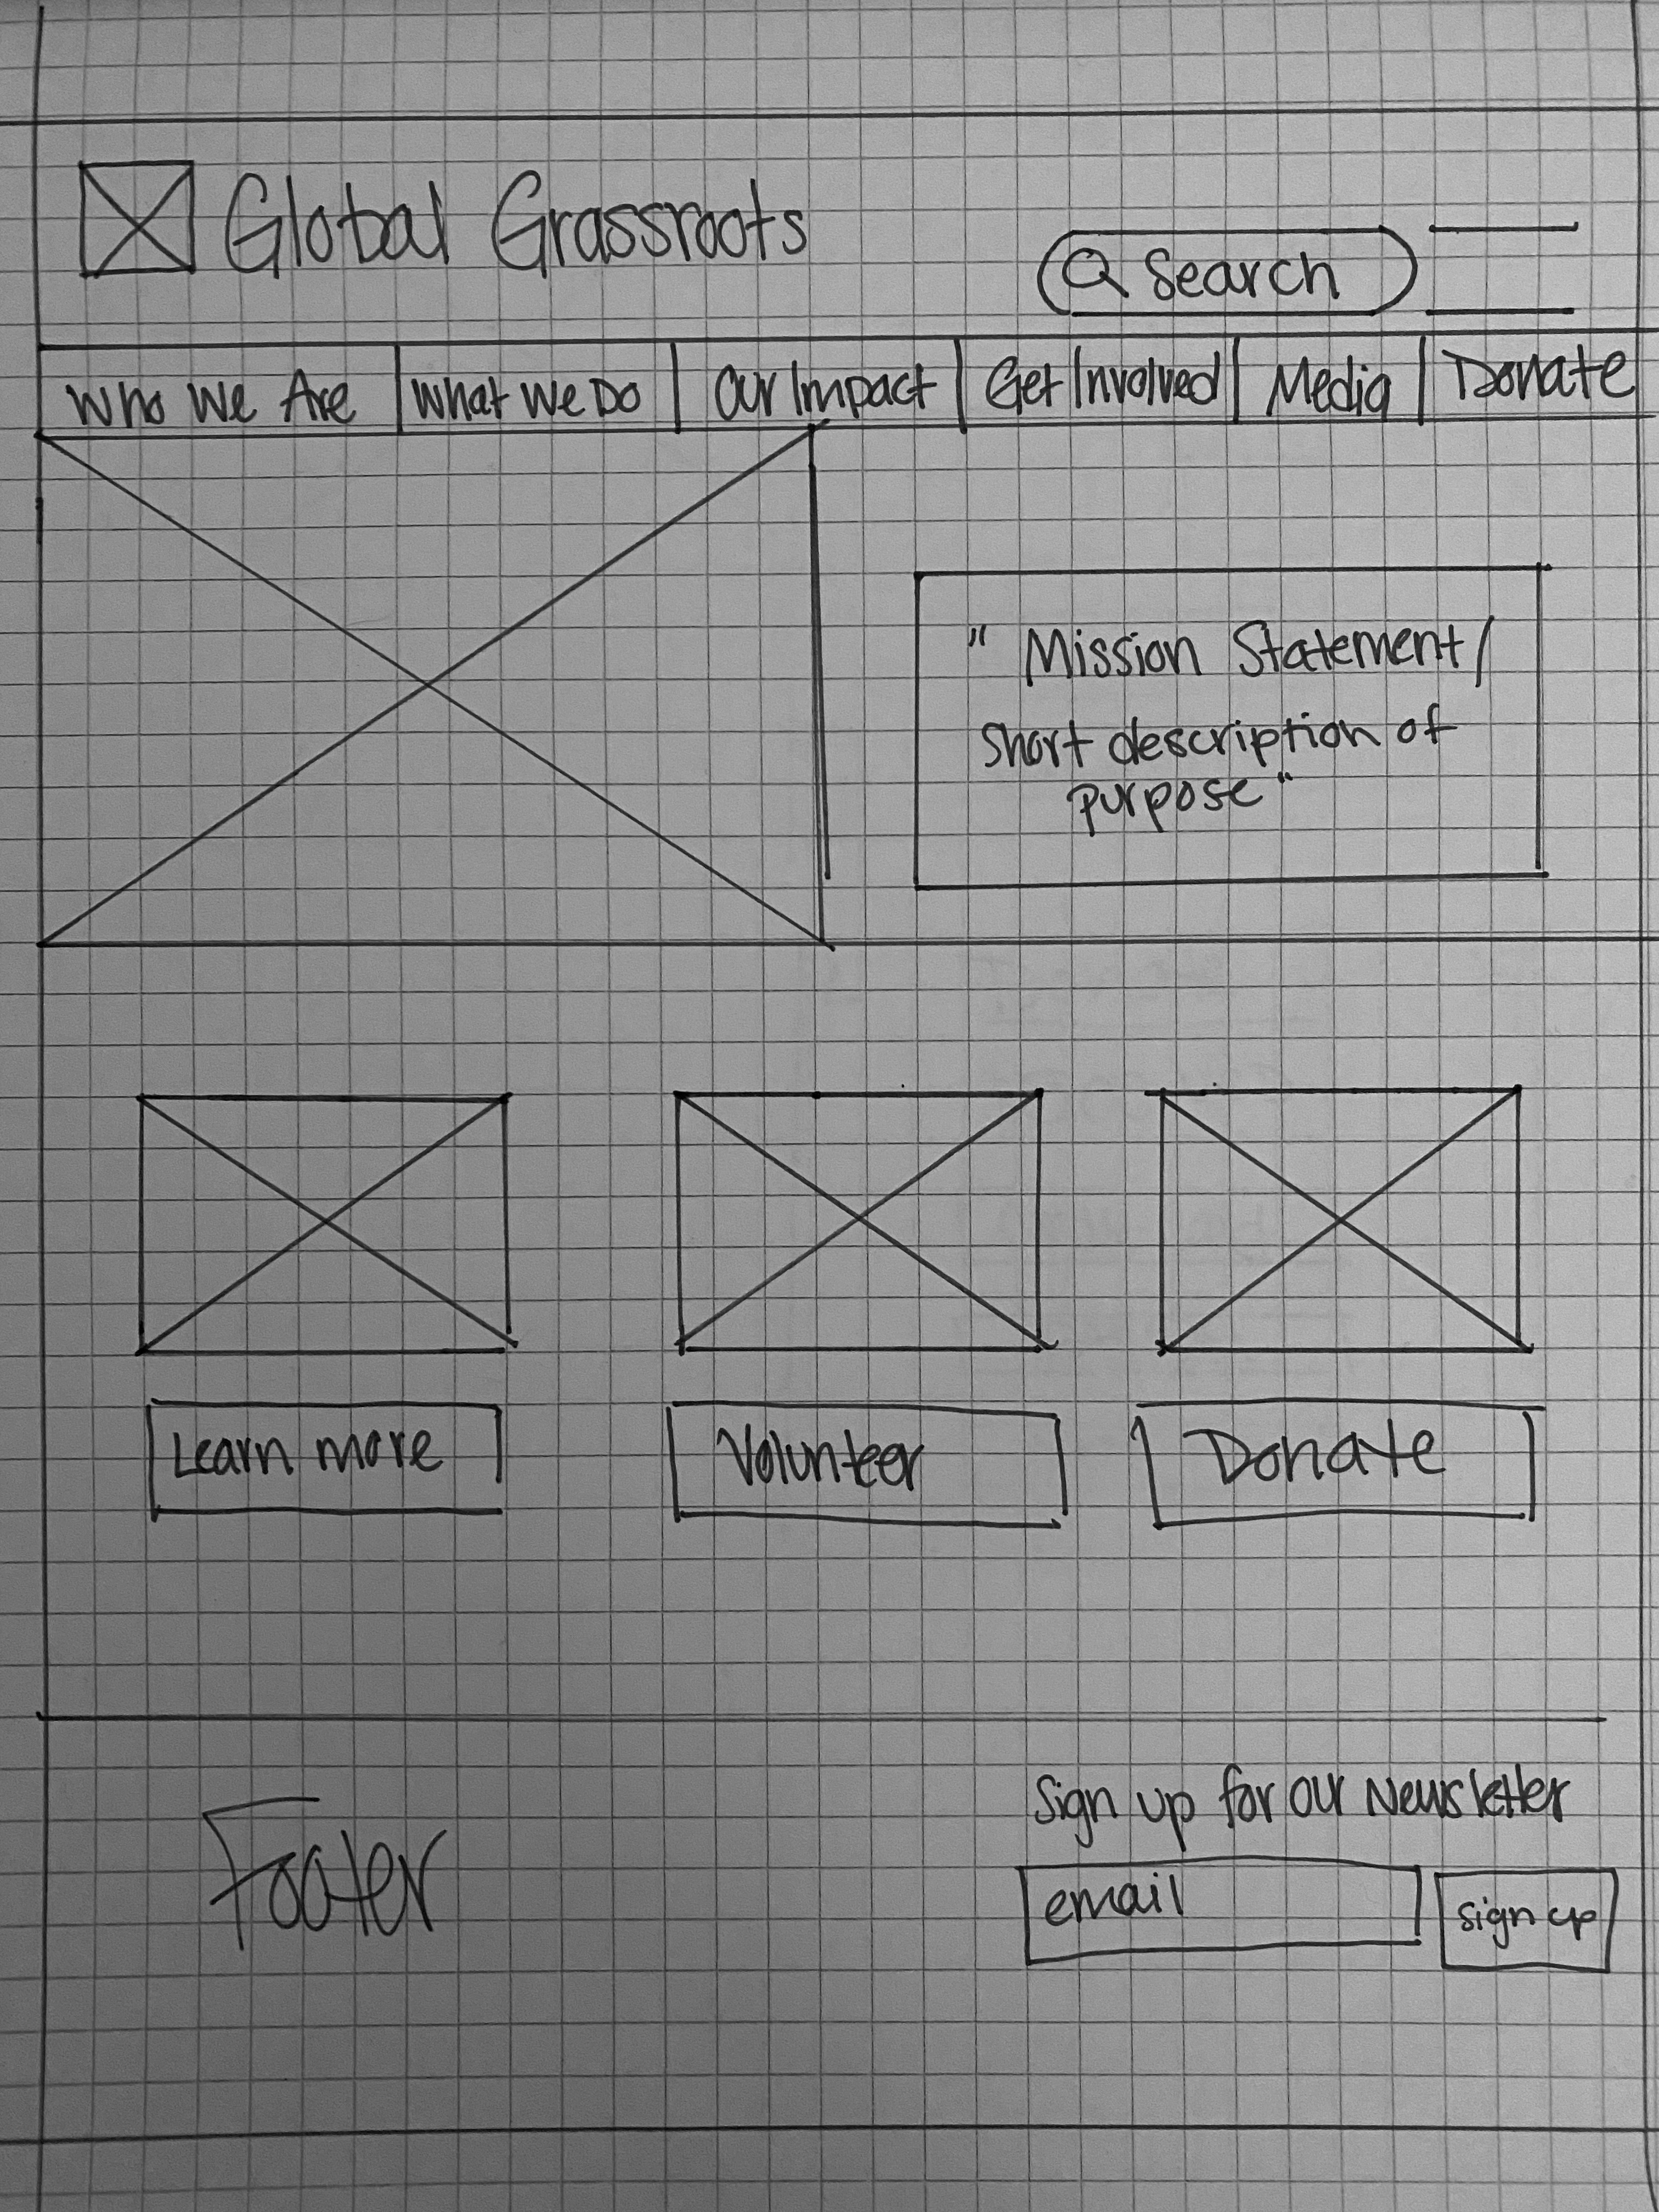 Global Grassroots
Search
Who We Are What We Do Our Impact Get Involved Media Donate
" Mission Statement/
Short description of
purpose "
Learn more Volunteer Donate
Sign up for our Newsletter
Footer
email sign up